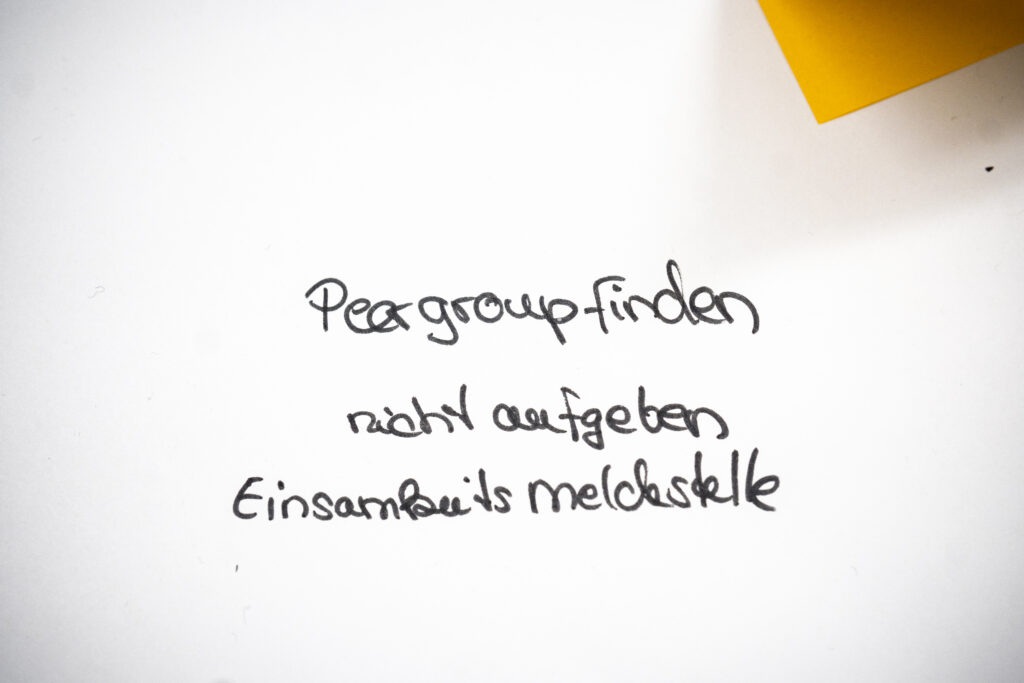 Peergroup finden
nicht aufgeben
Einsamkeits meldestelle